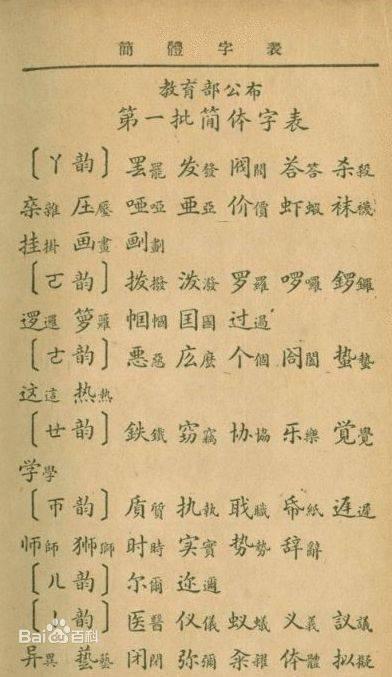 簡體字表
教育部公布
第一批简体字表
〔ㄚ韵〕 罢罷 发發 阀閥 荅答 杀殺
杂雜 压壓 哑啞 亚亞 价價 虾蝦 袜襪
挂掛 画畫 劃
〔ㄛ韵〕 拨撥 泼潑 罗羅 啰囉 锣鑼
逻邏 箩籮 帼幗 国國 过過
〔ㄜ韵〕 恶惡 庅麼 个個 阁閣 蛰蟄
这這 热熱
〔ㄝ韵〕 鉄鐵 窃竊 协協 乐樂 覚覺
学學
〔ㄭ韵〕 质質 执執 职職 帋紙 迟遲
师師 狮獅 时時 实實 势勢 辞辭
〔ㄦ韵〕 尔爾 迩邇
〔ㄧ韵〕 医醫 仪儀 蚁蟻 义義 议議
异異 藝 闭閉 弥彌 籴糴 体體 拟擬
Bai百科